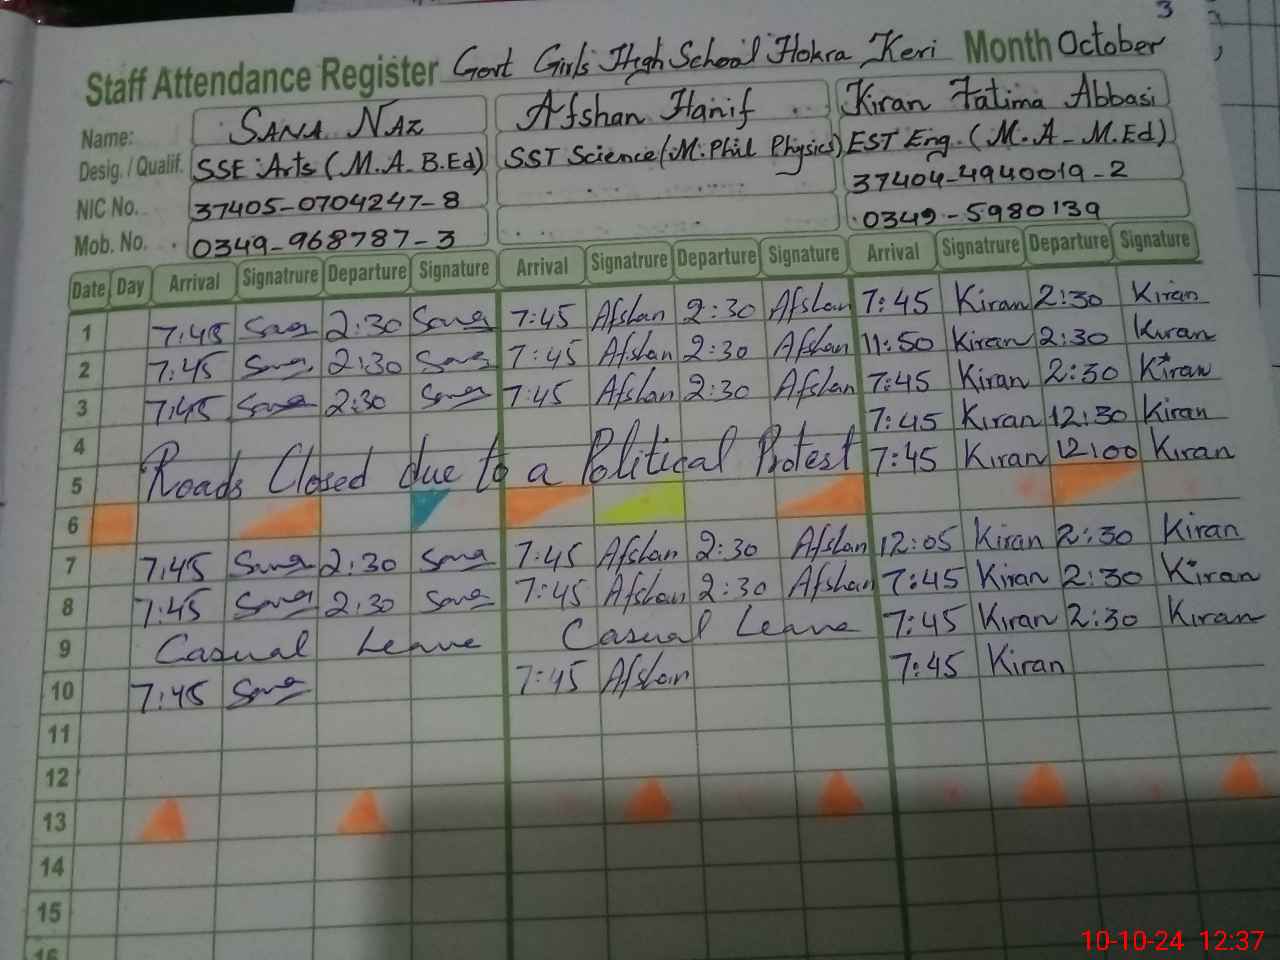 3
Staff Attendance Register Govt Girls High School Hokra Keri Month October
Name: SANA NAZ Afshan Hanif Kiran Fatima Abbasi
Desig. / Qualif. SSE Arts (M.A. B.Ed) SST Science (M.Phil Physics) EST Eng. (M.A - M.Ed)
NIC No. 37405-0704247-8 37404-4940019-2
Mob. No. 0349-968787-3 0349-5980139
Date Day Arrival Signatrure Departure Signature Arrival Signatrure Departure Signature Arrival Signatrure Departure Signature
1 7:45 Sana 2:30 Sana 7:45 Afshan 2:30 Afshan 7:45 Kiran 2:30 Kiran
2 7:45 Sana 2:30 Sana 7:45 Afshan 2:30 Afshan 11:50 Kiran 2:30 Kiran
3 7:45 Sana 2:30 Sana 7:45 Afshan 2:30 Afshan 7:45 Kiran 2:30 Kiran
4 7:45 Kiran 12:30 Kiran
5 Roads Closed due to a Political Protest 7:45 Kiran 12:00 Kiran
6
7 7:45 Sana 2:30 Sana 7:45 Afshan 2:30 Afshan 12:05 Kiran 2:30 Kiran
8 7:45 Sana 2:30 Sana 7:45 Afshan 2:30 Afshan 7:45 Kiran 2:30 Kiran
9 Casual Leave Casual Leave 7:45 Kiran 2:30 Kiran
10 7:45 Sana 7:45 Afshan 7:45 Kiran
11
12
13
14
15
16
10-10-24 12:37